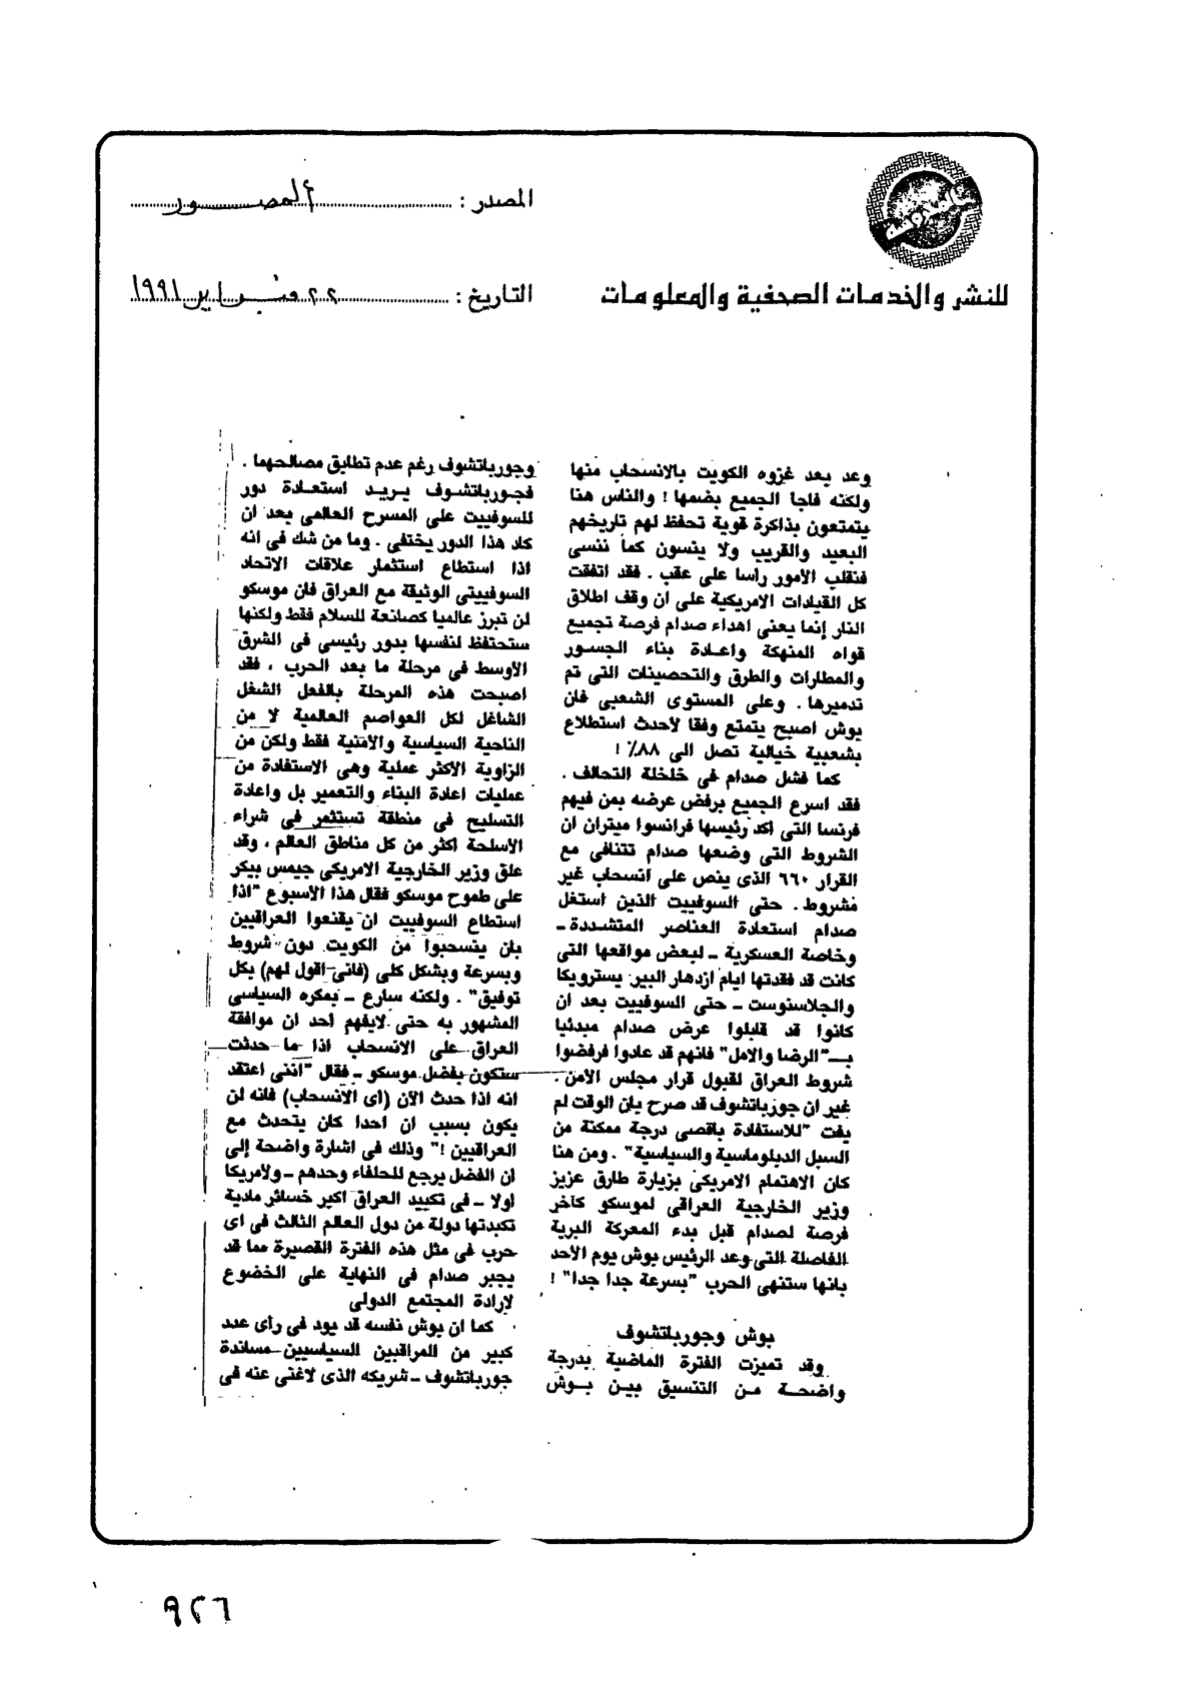 المصدر : المصور
التاريخ : ٢٢ فبراير ١٩٩١
للنشر والخدمات الصحفية والمعلومات
وعد بعد غزوه الكويت بالانسحاب منها
ولكنه فاجا الجميع بضمها ! والناس هنا
يتمتعون بذاكرة قوية تحفظ لهم تاريخهم
البعيد والقريب ولا ينسون كما ننسى
فنقلب الأمور راسا على عقب . فقد اتفقت
كل القيادات الامريكية على ان وقف اطلاق
النار إنما يعنى اهداء صدام فرصة تجميع
قواه المنهكة واعادة بناء الجسور
والمطارات والطرق والتحصينات التى تم
تدميرها . وعلى المستوى الشعبى فان
بوش اصبح يتمتع وفقا لأحدث استطلاع
بشعبية خيالية تصل الى ٨٨٪ !
كما فشل صدام فى خلخلة التحالف .
فقد اسرع الجميع برفض عرضه بمن فيهم
فرنسا التى اكد رئيسها فرانسوا ميتران ان
الشروط التى وضعها صدام تتنافى مع
القرار ٦٦٠ الذى ينص على انسحاب غير
مشروط . حتى السوفييت الذين استغل
صدام استعادة العناصر المتشددة ـ
وخاصة العسكرية ـ لبعض مواقعها التى
كانت قد فقدتها ايام ازدهار البير يسترويكا
والجلاسنوست ـ حتى السوفييت بعد ان
كانوا قد قابلوا عرض صدام مبدئيا
بـ "الرضا والامل" فانهم قد عادوا فرفضوا
شروط العراق لقبول قرار مجلس الأمن .
غير ان جورباتشوف قد صرح بان الوقت لم
يفت "للاستفادة باقصى درجة ممكنة من
السبل الدبلوماسية والسياسية" . ومن هنا
كان الاهتمام الامريكى بزيارة طارق عزيز
وزير الخارجية العراقى لموسكو كآخر
فرصة لصدام قبل بدء المعركة البرية
الفاصلة التى وعد الرئيس بوش يوم الأحد
بانها ستنهى الحرب "بسرعة جدا جدا" !
بوش وجورباتشوف
وقد تميزت الفترة الماضية بدرجة
واضحة من التنسيق بين بوش
وجورباتشوف رغم عدم تطابق مصالحهما .
فجورباتشوف يريد استعادة دور
للسوفييت على المسرح العالمى بعد ان
كاد هذا الدور يختفى . وما من شك فى انه
اذا استطاع استثمار علاقات الاتحاد
السوفييتى الوثيقة مع العراق فان موسكو
لن تبرز عالميا كصانعة للسلام فقط ولكنها
ستحتفظ لنفسها بدور رئيسى فى الشرق
الاوسط فى مرحلة ما بعد الحرب ، فقد
اصبحت هذه المرحلة بالفعل الشغل
الشاغل لكل العواصم العالمية لا من
الناحية السياسية والامنية فقط ولكن من
الزاوية الأكثر عملية وهى الاستفادة من
عمليات اعادة البناء والتعمير بل واعادة
التسليح فى منطقة تستثمر فى شراء
الأسلحة اكثر من كل مناطق العالم ، وقد
علق وزير الخارجية الامريكى جيمس بيكر
على طموح موسكو فقال هذا الأسبوع "اذا
استطاع السوفييت ان يقنعوا العراقيين
بان ينسحبوا من الكويت دون شروط
وبسرعة وبشكل كلى (فانى اقول لهم) بكل
توفيق" . ولكنه سارع ـ بمكره السياسى
المشهور به حتى لايفهم احد ان موافقة
العراق على الانسحاب اذا ما حدثت
ستكون بفضل موسكو ـ فقال "اننى اعتقد
انه اذا حدث الآن (اى الانسحاب) فانه لن
يكون بسبب ان احدا كان يتحدث مع
العراقيين !" وذلك فى اشارة واضحة إلى
ان الفضل يرجع للحلفاء وحدهم ـ ولامريكا
اولا ـ فى تكبيد العراق اكبر خسائر مادية
تكبدتها دولة من دول العالم الثالث فى اى
حرب فى مثل هذه الفترة القصيرة مما قد
يجبر صدام فى النهاية على الخضوع
لإرادة المجتمع الدولى
كما ان بوش نفسه قد يود فى رأى عدد
كبير من المراقبين السياسيين مساندة
جورباتشوف ـ شريكه الذى لاغنى عنه فى
٩٢٦